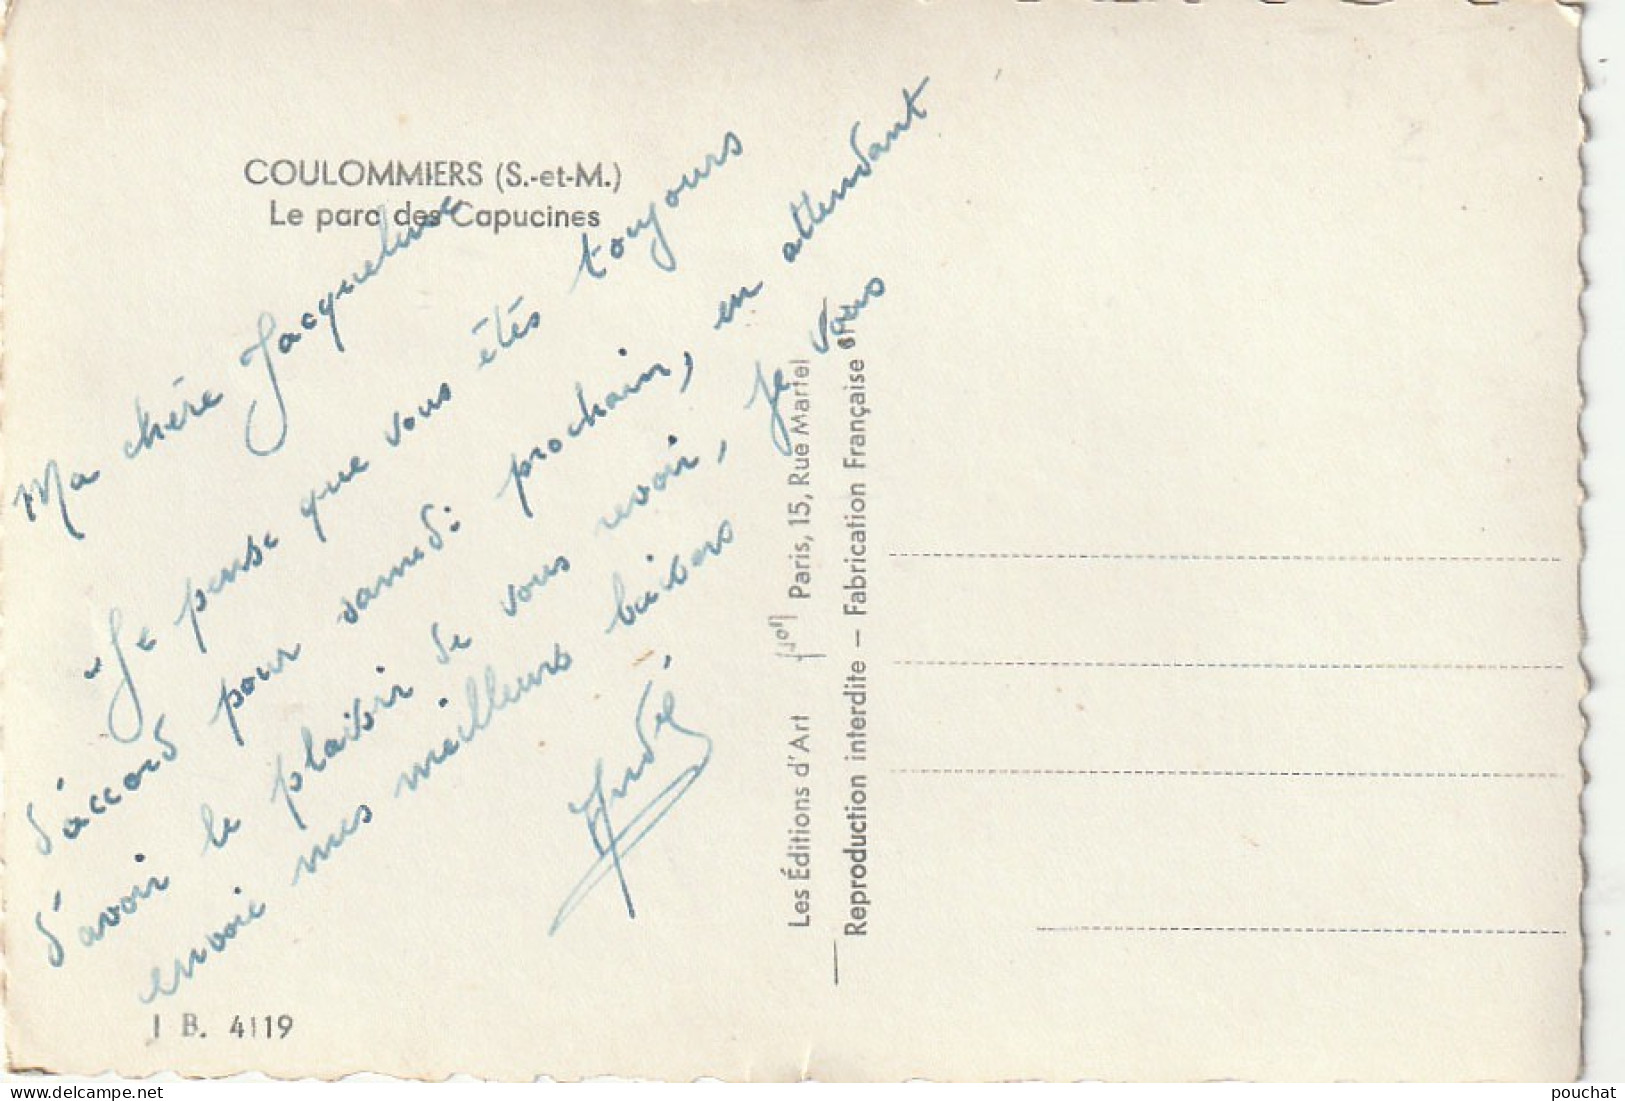 COULOMMIERS (S.-et-M.)
Le parc des Capucines
Ma chère Jacqueline
Je pense que vous êtes toujours
d'accord pour samedi prochain, en attendant
d'avoir le plaisir de vous revoir, je vous
envoie mes meilleurs baisers
André
I B. 4119
Les Éditions d'Art Paris, 15, Rue Martel
Reproduction interdite — Fabrication Française
www.delcampe.net
pouchat